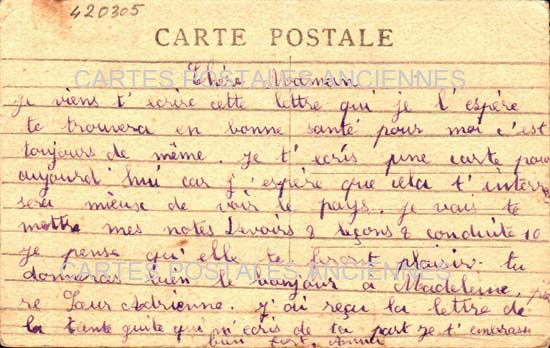 420305
CARTE POSTALE
CARTES POSTALES ANCIENNES
Chère Maman
je viens t'écrire cette lettre qui je l'espère
te trouvera en bonne santé pour moi c'est
toujours de même. je t'ecris une carte pour
aujourd'hui car j'espère que cela t'interr
sera mieuse de voir le pays. je vais te
mettre mes notes Devoirs 8 leçons 8 conduite 10
je pense qu'elle te feront plaisir. tu
donneras bien le bonjour à Madeleine,
re Sœur Adrienne. j'ai reçu la lettre de
la tante qui m'ecris de ta part je t'embrasse
bien fort.
CARTES POSTALES ANCIENNES